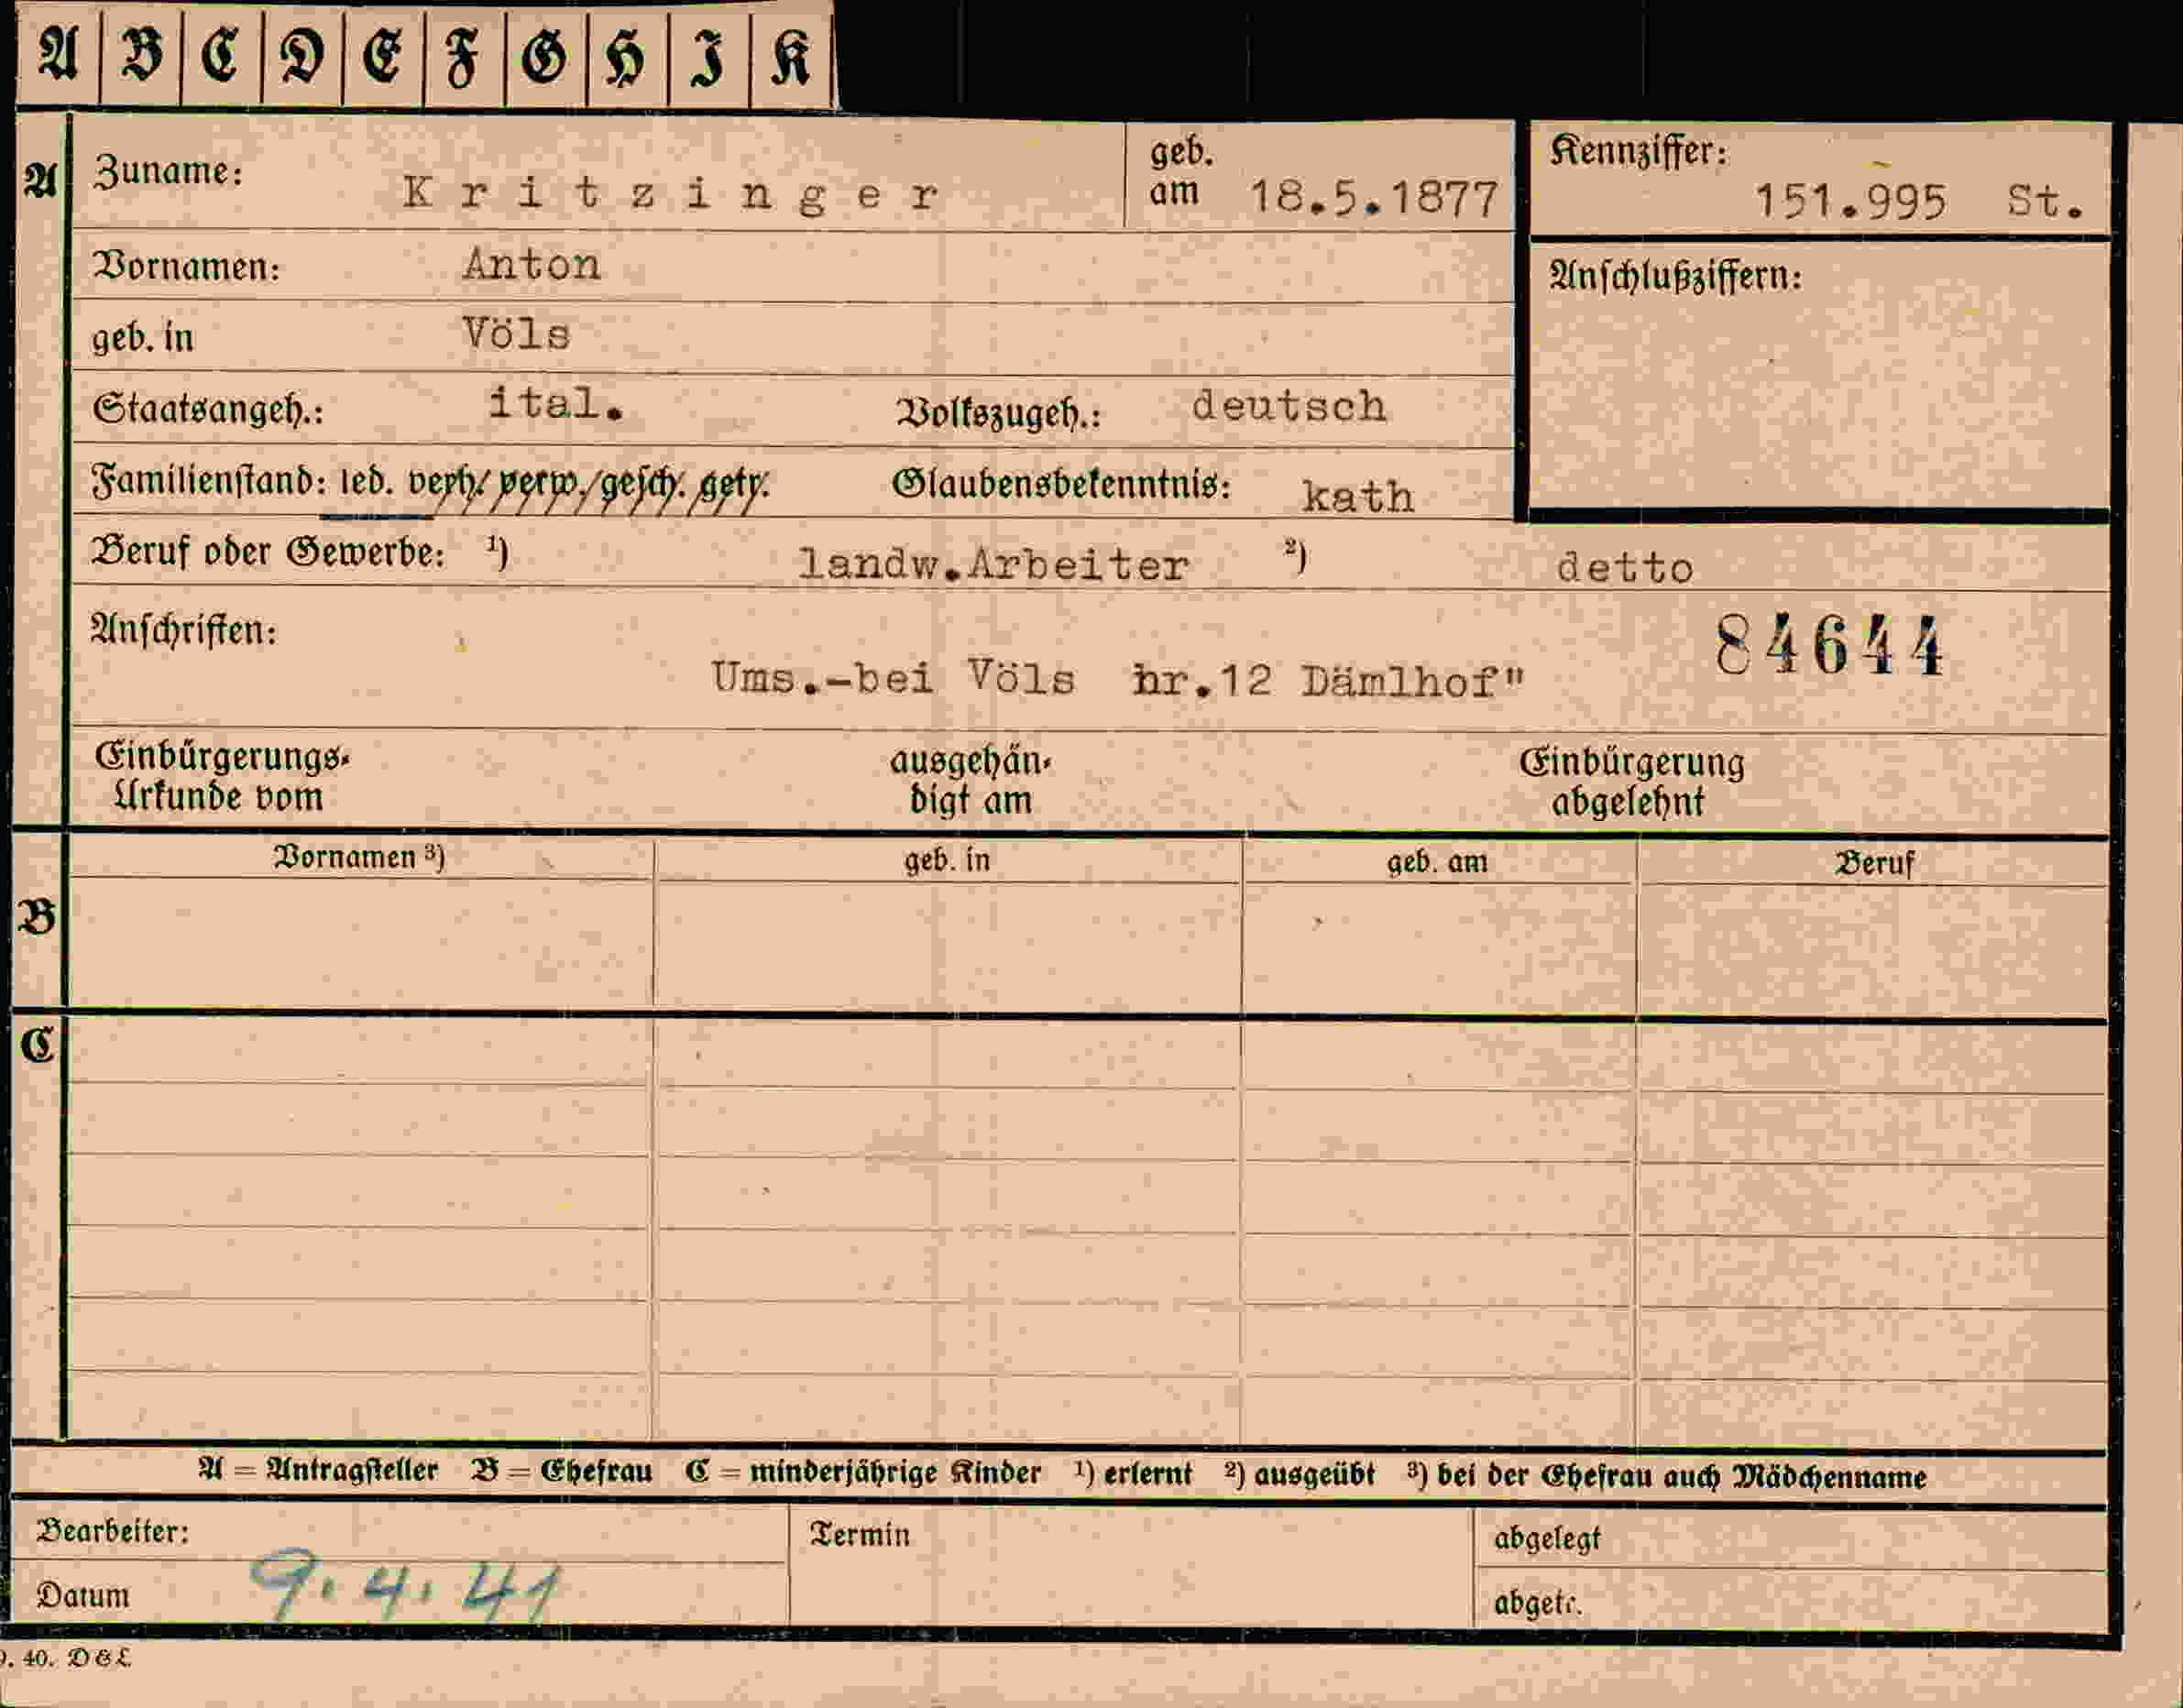 A B C D E F G H I K
A Zuname: Kritzinger geb. am 18.5.1877 Kennziffer: 151.995 St.
Vornamen: Anton Anschlußziffern:
geb. in Völs
Staatsangeh.: ital. Volkszugeh.: deutsch
Familienstand: led. verh. verw. gesch. getr. Glaubensbekenntnis: kath
Beruf oder Gewerbe: ¹) landw.Arbeiter ²) detto
Anschriften: 84644
Ums.-bei Völs hr.12 Dämlhof"
Einbürgerungs- ausgehän- Einbürgerung
Urkunde vom digt am abgelehnt
Vornamen ³) geb. in geb. am Beruf
B
C
A = Antragsteller B = Ehefrau C = minderjährige Kinder ¹) erlernt ²) ausgeübt ³) bei der Ehefrau auch Mädchenname
Bearbeiter: Termin abgelegt
Datum 9.4.41 abgetr.
9. 40. D&L